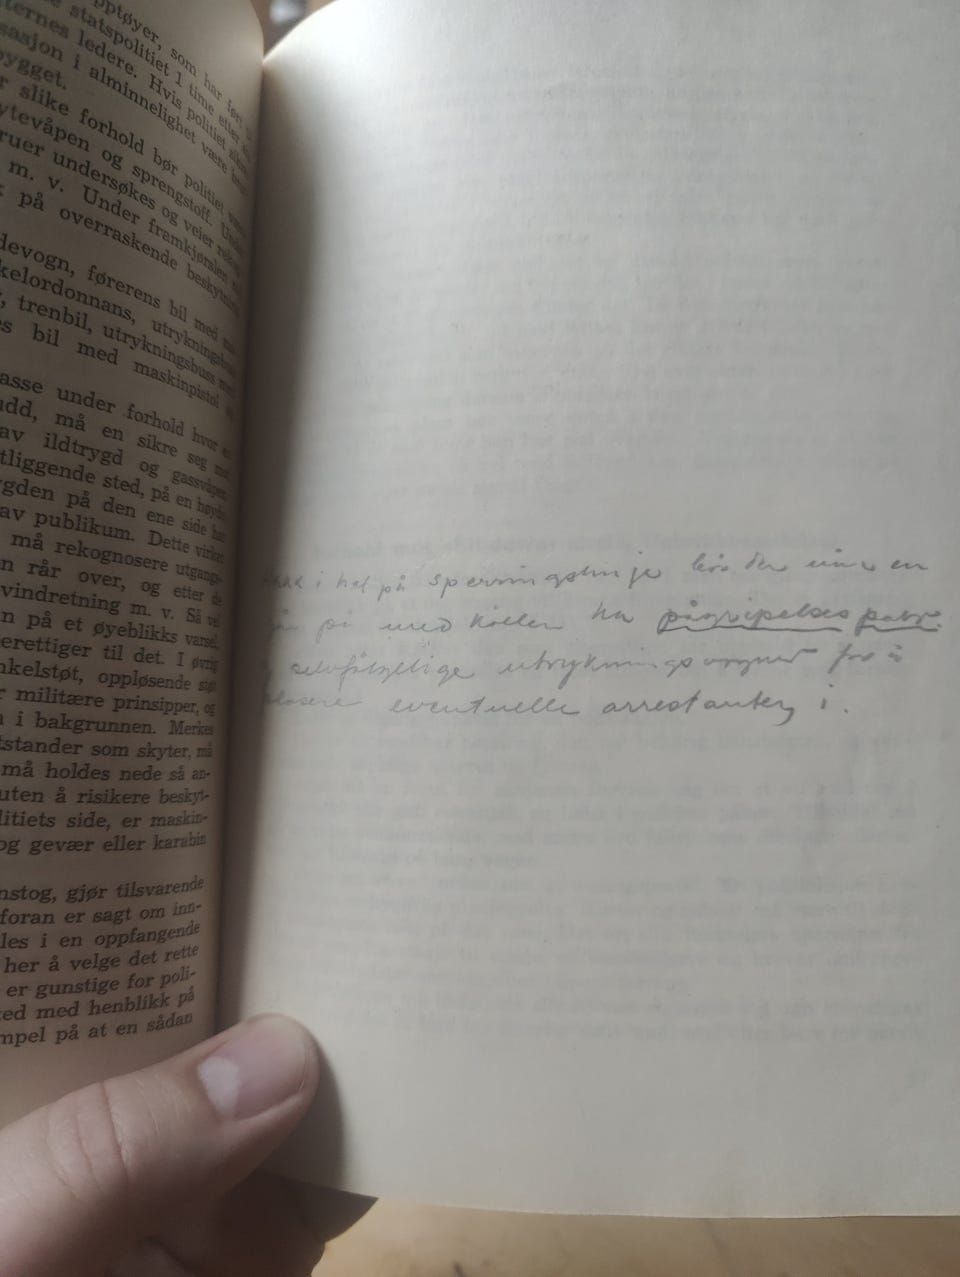 opptøyer, som har ført
statspolitiet 1 time etter
ternes ledere. Hvis politiet
sasjon i alminnelighet være
bygget.
slike forhold bør politiet
ytevåpen og sprengstoff.
ruer undersøkes og veier
m. v. Under framkjørslen
på overraskende
devogn, førerens bil med
kelordonnans, utrykningsbuss
, trenbil, utrykningsbuss
es bil med maskinpistol
asse under forhold hvor
udd, må en sikre seg
av ildtrygd og gassvåpen
tliggende sted, på en
gden på den ene side har
av publikum. Dette virket
må rekognosere utgangs-
n rår over, og etter de
vindretning m. v. Så vel
n på et øyeblikks varsel,
erettiger til det. I øvrig
nkelstøt, oppløsende støt
r militære prinsipper, og
n i bakgrunnen. Merkes
tstander som skyter, må
må holdes nede så an-
uten å risikere beskyt-
litiets side, er maskin-
og gevær eller karabin
nstog, gjør tilsvarende
foran er sagt om inn-
les i en oppfangende
her å velge det rette
er gunstige for poli-
ted med henblikk på
mpel på at en sådan
i hel på sperringslinje bör den en
på med køllen ha pågripelses patr.
selvfölgelige utrykningsvogner for å
plasere eventuelle arrestanter i.